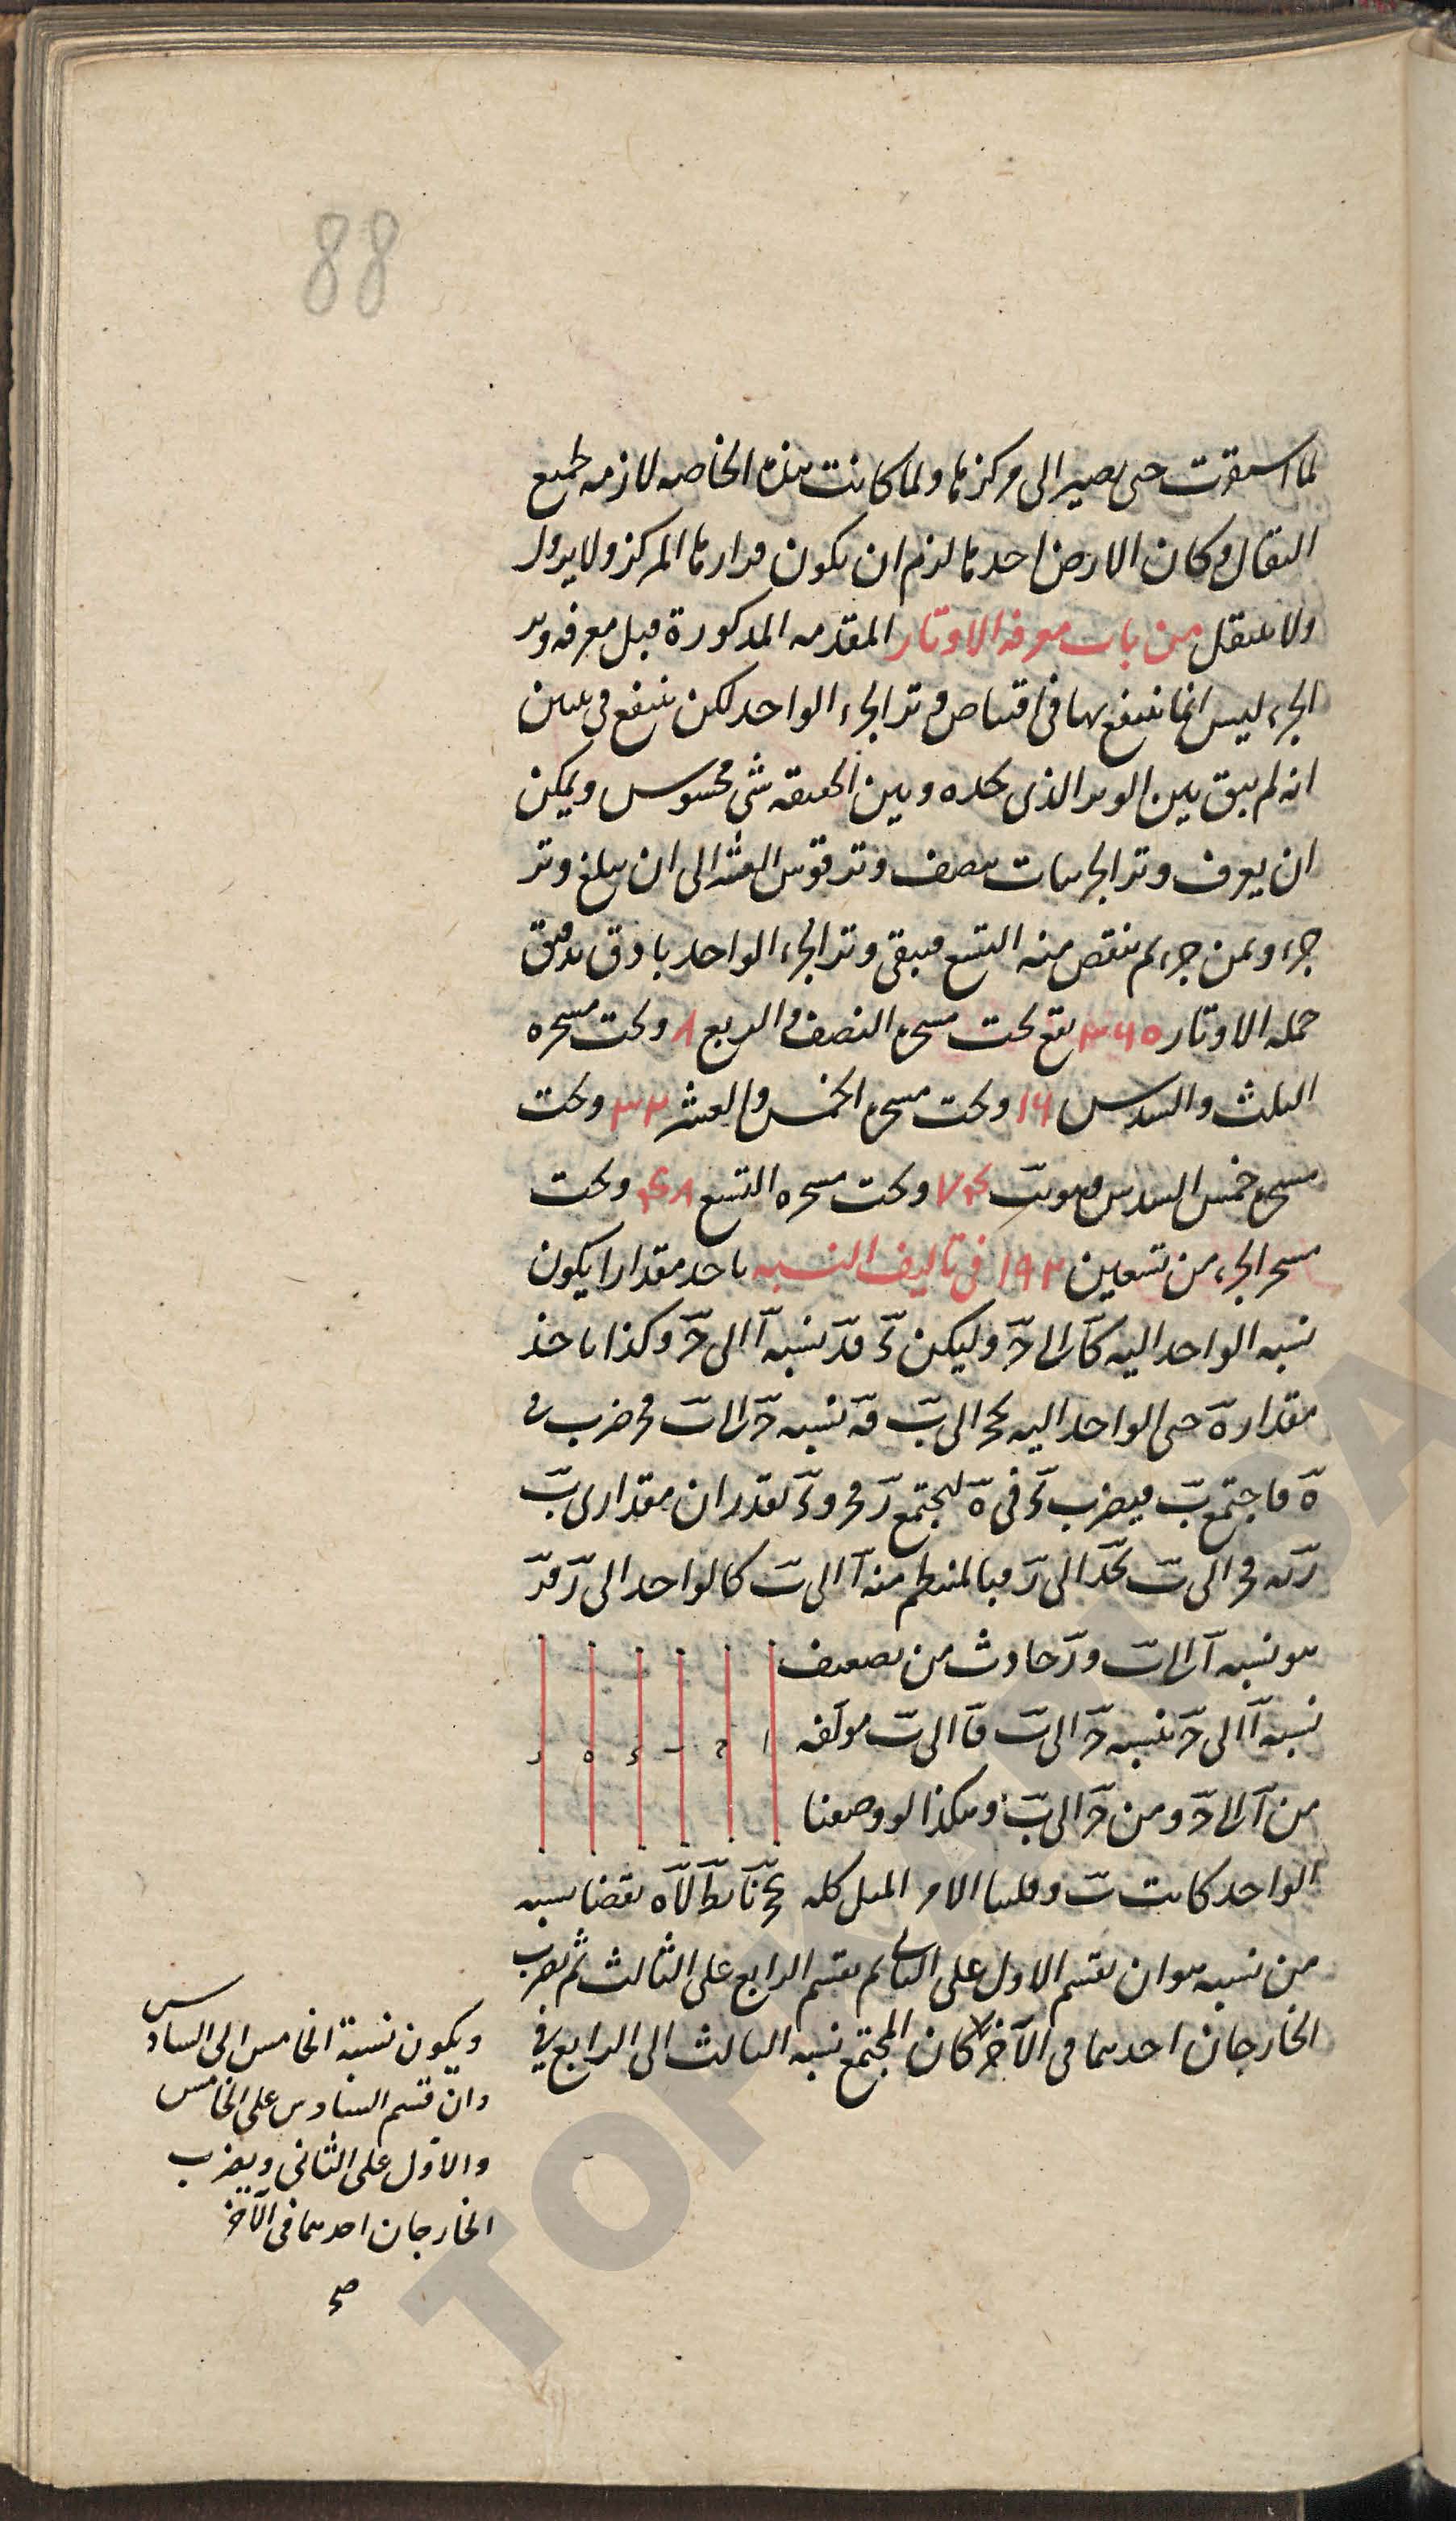 88
لما استقرت حتى يصير الى مركزها ولما كانت هذه الخاصه لازمه لجميع
الثقال وكان الارض احدها لزم ان يكون مدارها المركز ولا يزول
ولا ينتقل من باب معرفه الاوتار المقدمه المذكورة قبل معرفه وتر
الجزء ليس انما ينتفع بها فى اقتناص وتر الجزء الواحد لكن ينتفع فى تبيين
انه لم يبق بين الوتر الذى نجده وبين الحقيقه شئ محسوس ويمكن
ان يعرف وتر الجزء بان ينصف وتر قوس العشر الى ان يبلغ وتر
جزء وثمن جزء ثم ينقص منه التسع فيبقى وتر الجزء الواحد بادق تدقيق
جمله الاوتار ٣٦٥ يقع تحت مسحه النصف والربع ٨ وتحت مسحه
الثلث والسدس ١٦ وتحت مسحه الخمس والعشر ٣٢ وتحت
مسحه خمس السدس وهو يب ٧٤ وتحت مسحه التسع ٤٨ وتحت
مسحه الجزء من تسعين ١٩٢ فى تاليف النسبه ناخذ مقدارا يكون
نسبه الواحد اليه كآ الى حَ وليكن دَ فدَ نسبه آ الى حَ وكذا ناخذ
مقداره هَ حتى الواحد اليه كحَ الى بَ فهَ نسبه حَ الى بَ فحَ ضرب فى
هَ فاجتمع بَ فيضرب دَ فى هَ ليجتمع رَ فحَ ودَ بقدر ان مقدارى بَ
رَ بهَ فحَ الى بَ كدَ الى رَ فبالمنتظم منه آ الى بَ كالواحد الى رَ فرَ
هو نسبه آ الى بَ ورَ حادث من تضعيف
نسبه آ الى حَ بنسبه حَ الى بَ فآ الى بَ مولفه
من آ الى حَ ومن حَ الى بَ وهكذا لو وضعنا
ا ح ب د ه ر
الواحد كانت بَ وقلبنا الامر الميل كله نقصنا نسبه
من نسبه هو ان نقسم الاول على الثانى ثم نقسم الرابع على الثالث ثم نضرب
الخارجان احدهما فى الآخر كان المجتمع نسبه الثالث الى الرابع فى
ويكون نسبة الخامس الى السادس
وان قسم السادس على الخامس
والاول على الثانى ويضرب
الخارجان احدهما فى الآخر
صح
TOPKAPI SA